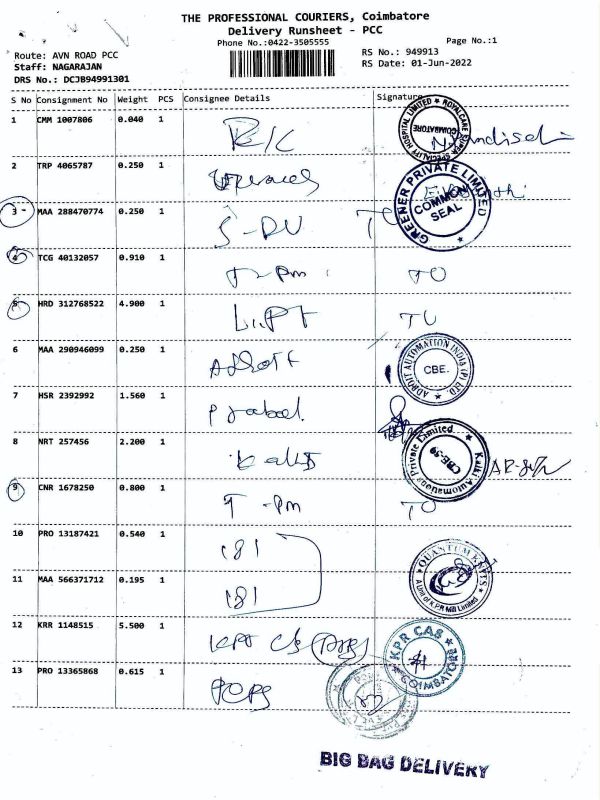 THE PROFESSIONAL COURIERS, Coimbatore
Delivery Runsheet - PCC
Phone No.:0422-3505555
Page No.:1
Route: AVN ROAD PCC
RS No.: 949913
Staff: NAGARAJAN
RS Date: 01-Jun-2022
DRS No.: DCJB94991301
S No Consignment No Weight PCS Consignee Details Signature
1 CMM 1007806 0.040 1 R/C
ROYALCARE SUPER SPECIALITY HOSPITAL LIMITED ★ COIMBATORE
2 TRP 4065787 0.250 1
GREENER PRIVATE LIMITED ★ COMMON SEAL
3 MAA 288470774 0.250 1
4 TCG 40132057 0.910 1 T-Pm TO
5 HRD 312768522 4.900 1 TO
6 MAA 290946099 0.250 1 ADROIT
ADROIT AUTOMATION INDIA (P) LTD ★ CBE.
7 HSR 2392992 1.560 1
8 NRT 257456 2.200 1
Kaiki Automation Private Limited
9 CNR 1678250 0.800 1 T-Pm TO
10 PRO 13187421 0.540 1 181
11 MAA 566371712 0.195 1 181
QUANTUM KNITS A Unit of K P R Mill Limited
12 KRR 1148515 5.500 1 KPR
KPR CAS COIMBATORE
13 PRO 13365868 0.615 1
BIG BAG DELIVERY